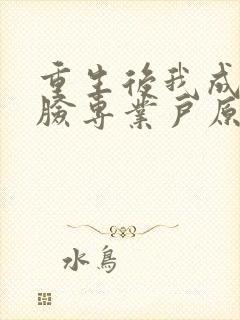 重生後我成
臉專業戶原
水鳥